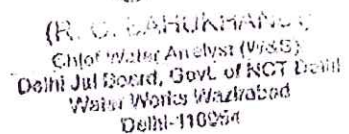 Chief Water Analyst (W&S)
Delhi Jal Board, Govt. of NCT Delhi
Water Works Wazirabad
Delhi-110054